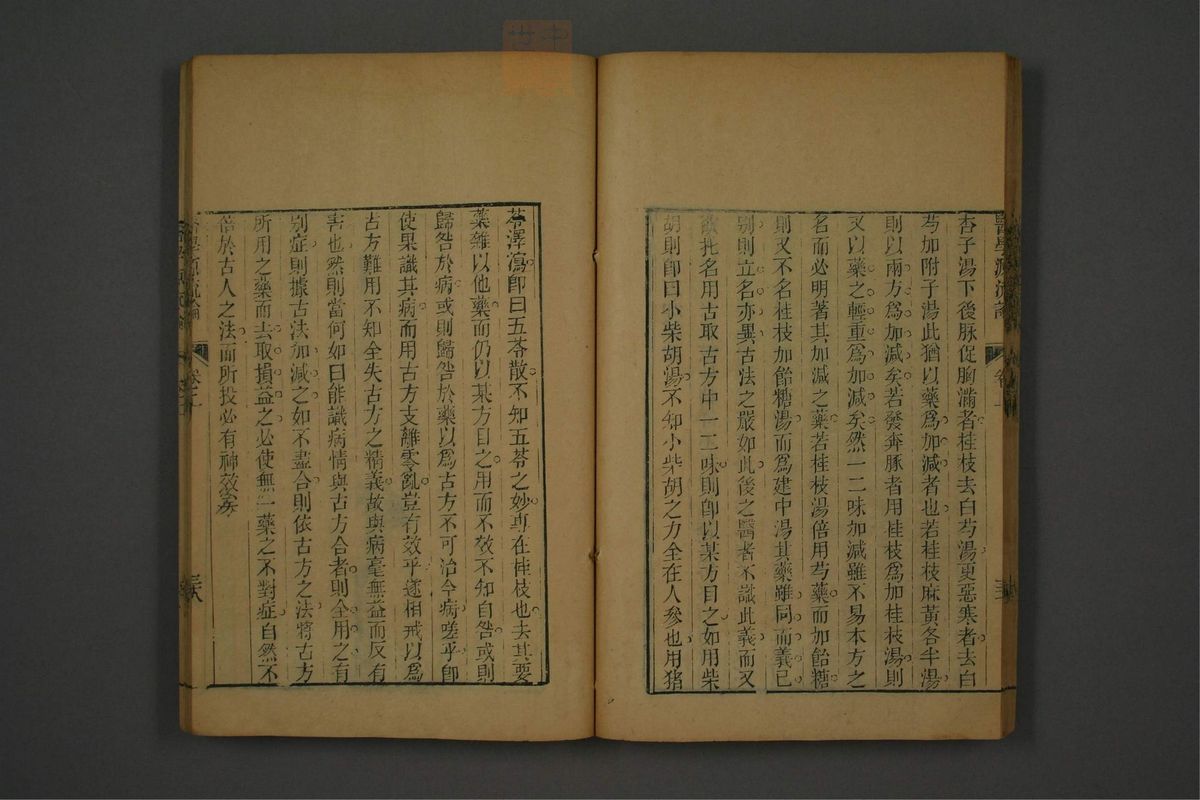 醫學源流論
卷上
杏子湯下後脉促胸滿者桂枝去白芍湯更惡寒者去白
芍加附子湯此猶以藥爲加減者也若桂枝麻黃各半湯
則以兩方爲加減矣若發奔豚者用桂枝爲加桂枝湯則
又以藥之輕重爲加減矣然一二味加減雖不易本方之
名而必明著其加減之藥若桂枝湯倍用芍藥而加飴糖
則又不名桂枝加飴糖湯而爲建中湯其藥雖同而義已
別則立名亦異古法之嚴如此後之醫者不識此義而又
欲托名用古取古方中一二味則卽以某方目之如用柴
胡則卽曰小柴胡湯不知小柴胡之力全在人參也用猪
苓澤瀉卽曰五苓散不知五苓之妙專在桂枝也去其要
藥雜以他藥而仍以某方目之用而不效不知自咎或則
歸咎於病或則歸咎於藥以爲古方不可治今病嗟乎卽
使果識其病而用古方支離零亂豈有效乎遂相戒以爲
古方難用不知全失古方之精義故與病毫無益而反有
害也然則當何如曰能識病情與古方合者則全用之有
別症則據古法加減之如不盡合則依古方之法將古方
所用之藥而去取損益之必使無一藥之不對症自然不
倍於古人之法而所投必有神效矣